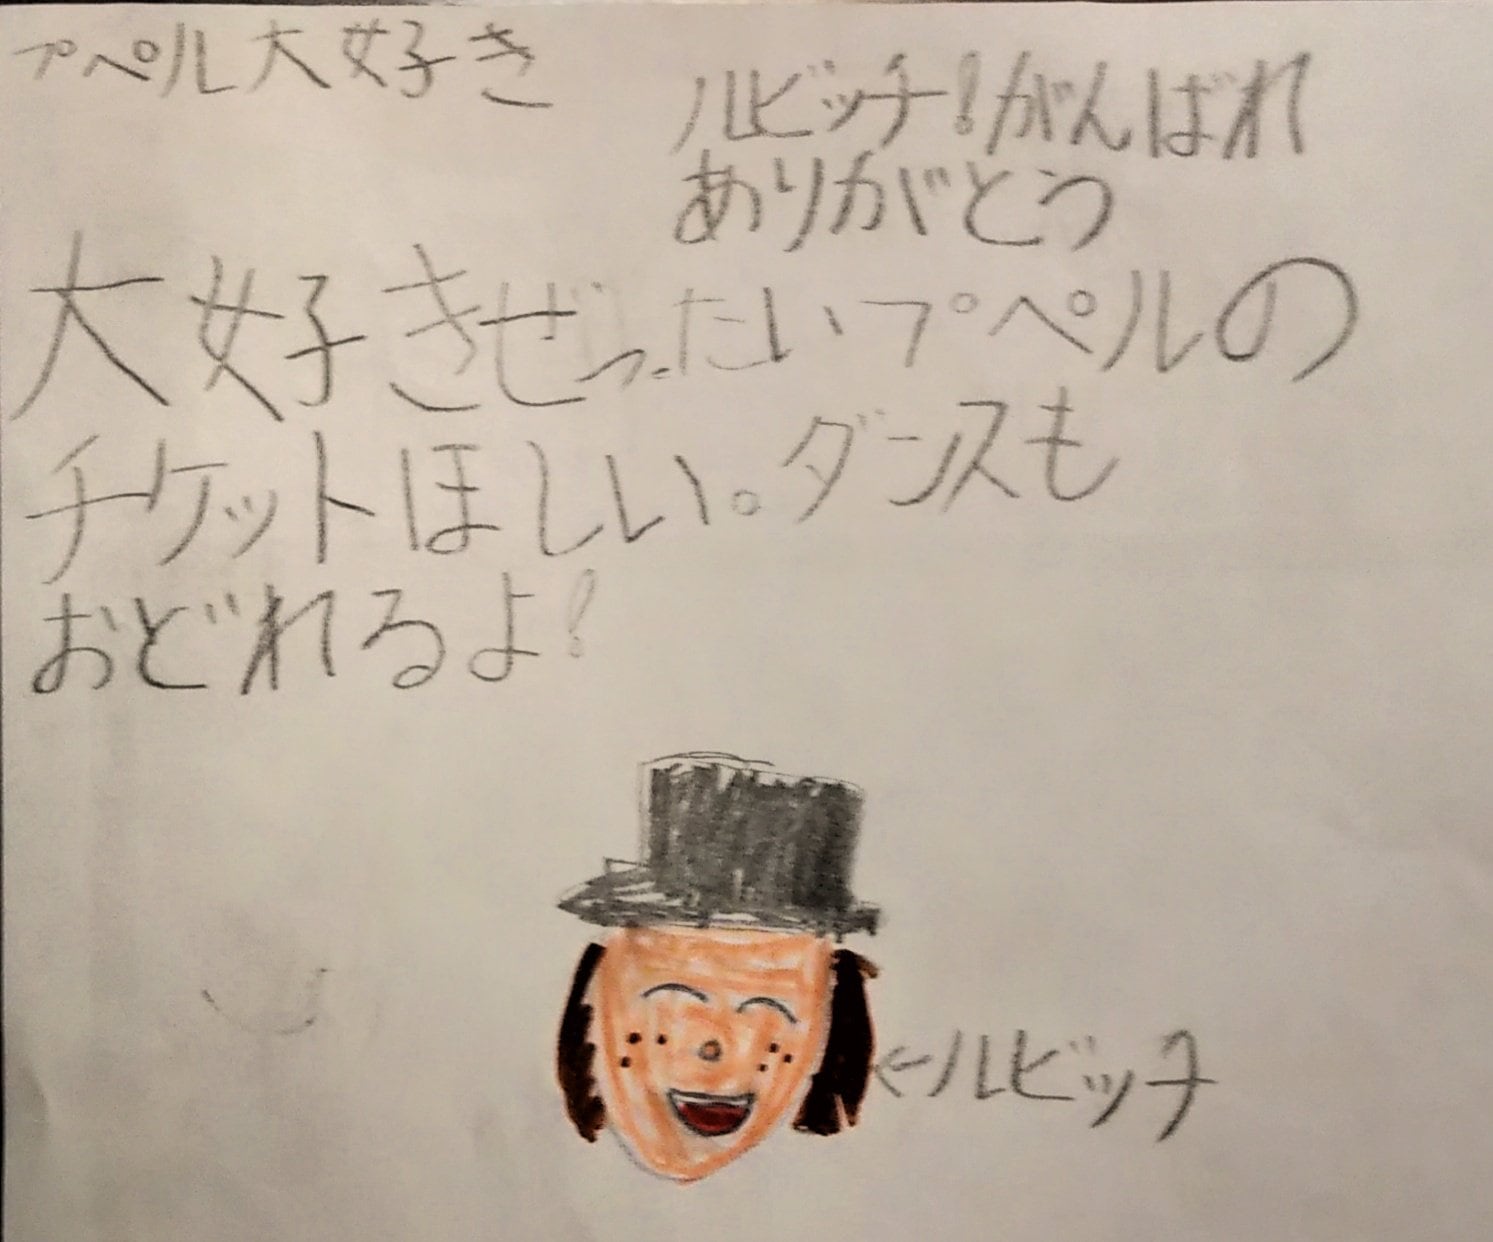 プペル大好き
ルビッチ!がんばれ
ありがとう
大好きぜったいプペルの
チケットほしい。ダンスも
おどれるよ!
←ルビッチ